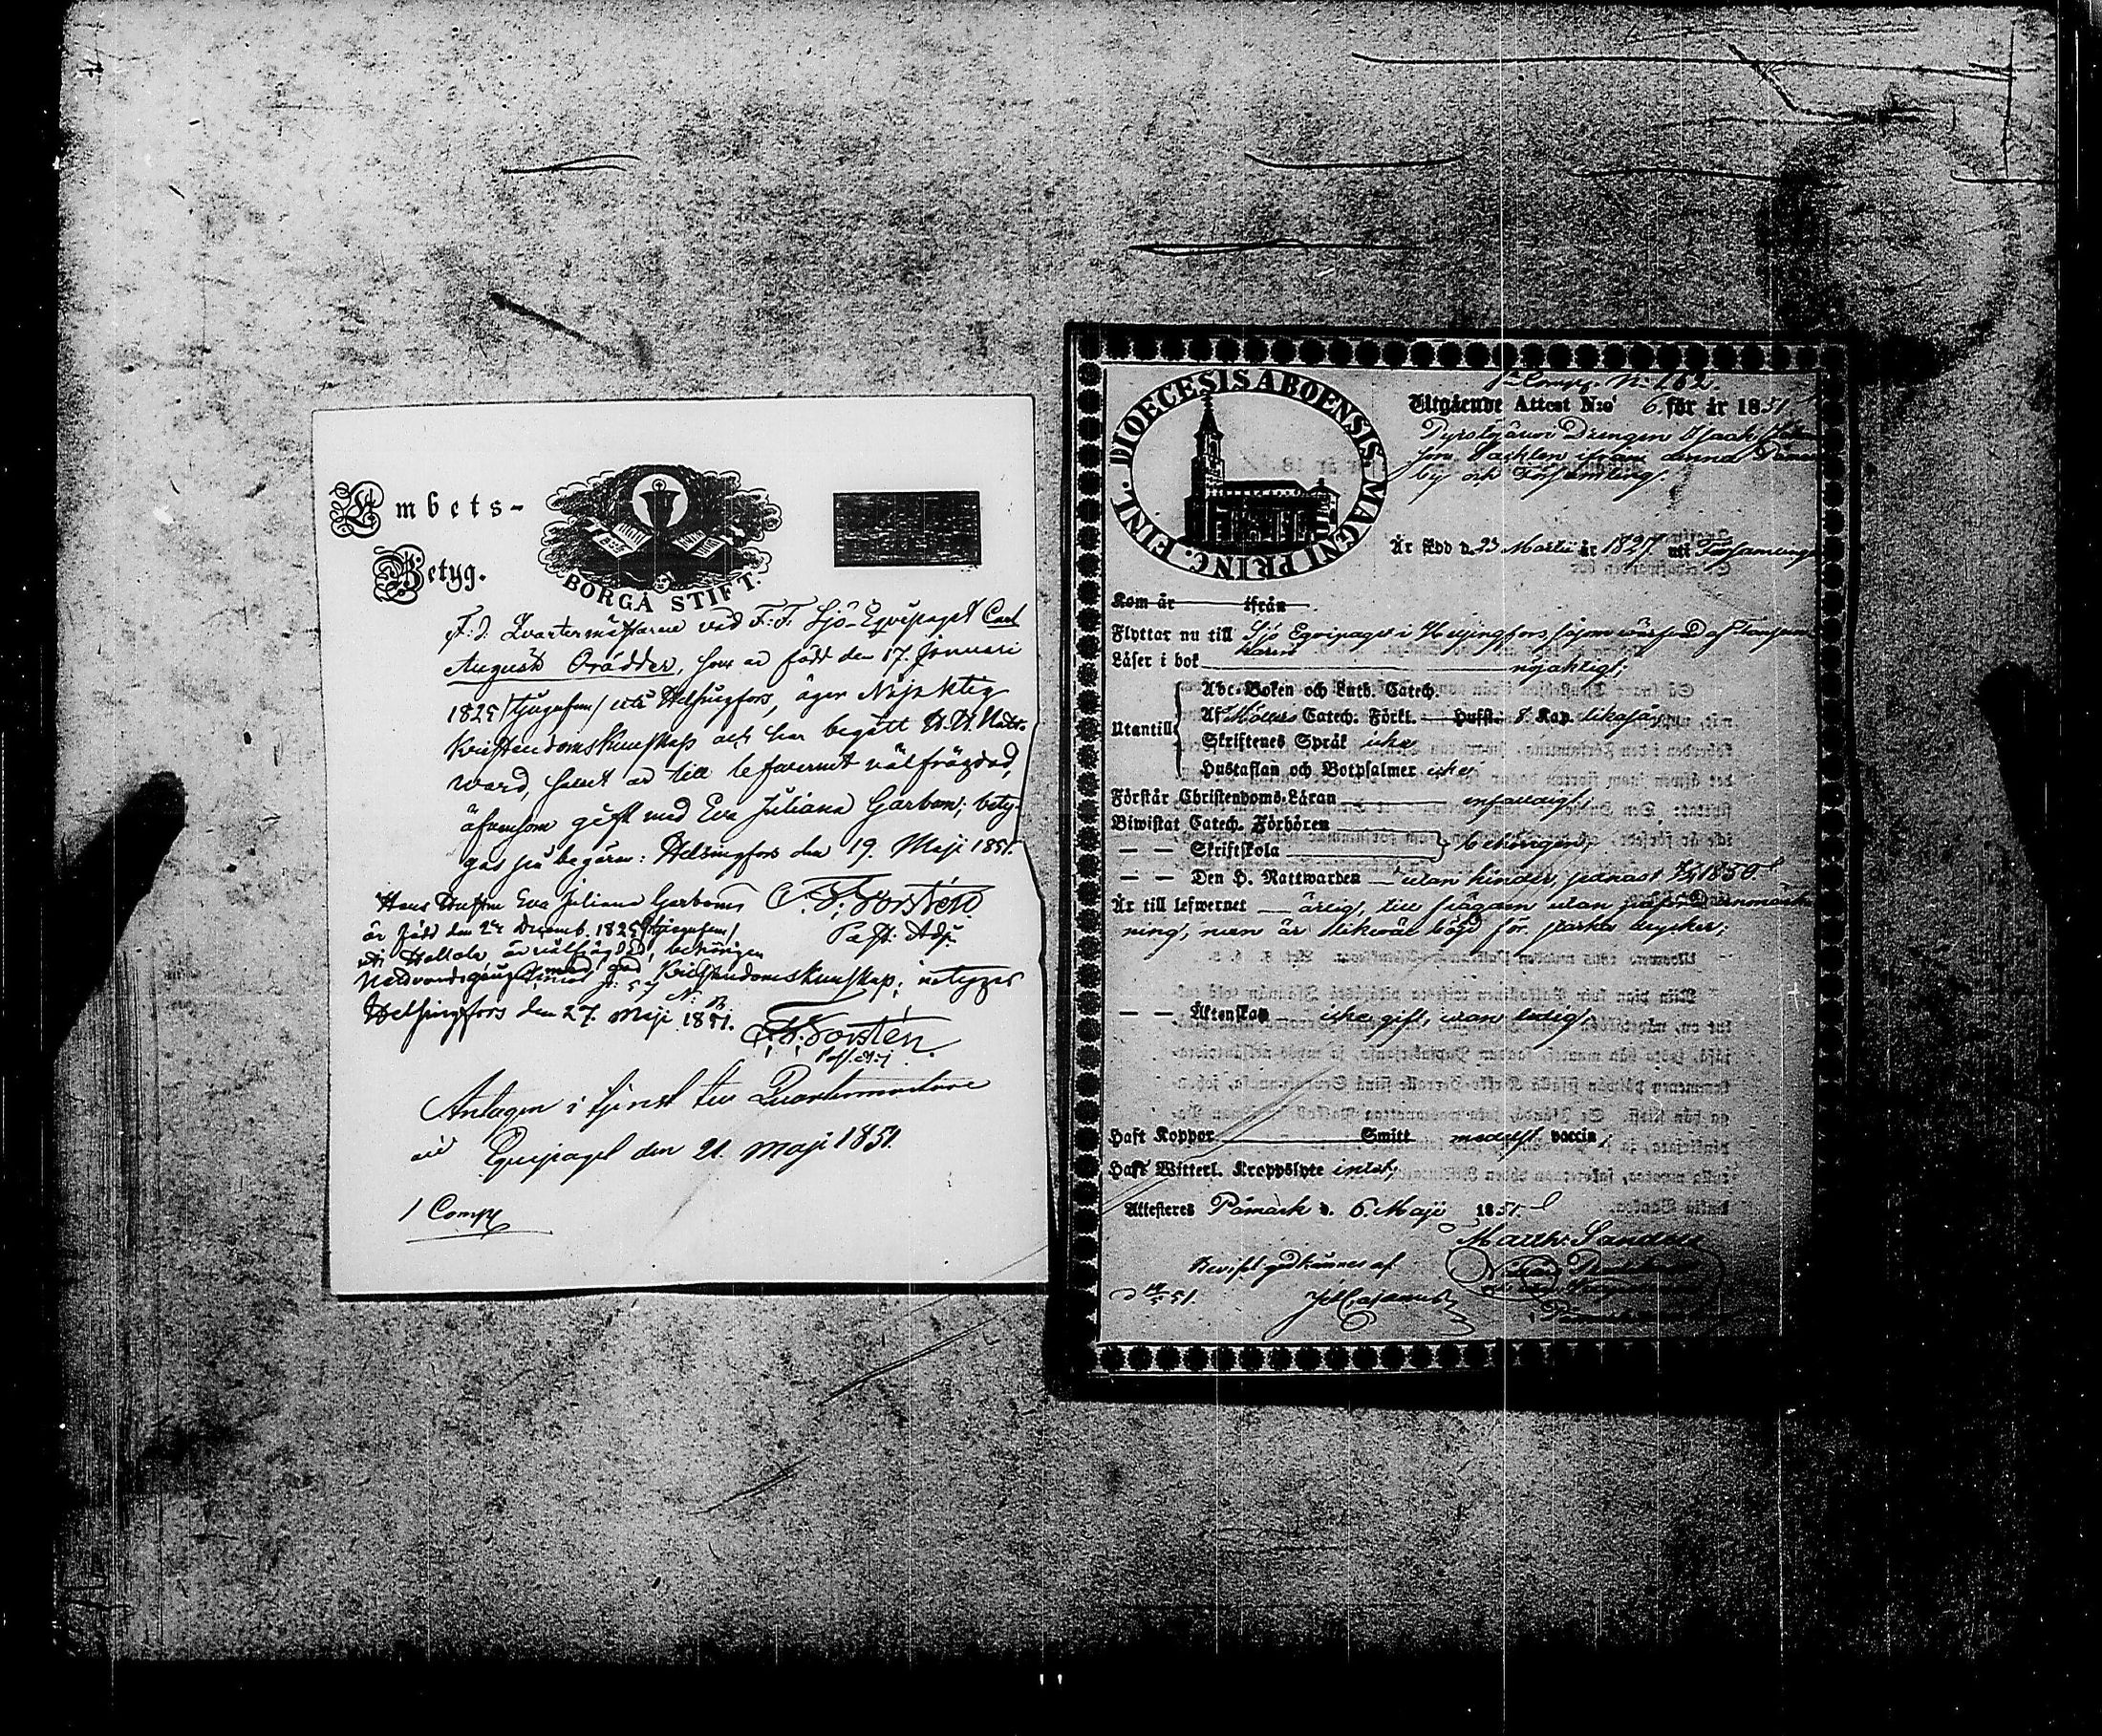 Embets-
Betyg.
BORGÅ STIFT.
F: d. Quartermästarne vid F: F. Sjö-Equipaget Carl
August Orädder, som är född den 17. Januari
1825 /tjugufem/ uti Helsingfors, äger Nöjaktig
Kristendomskunskap och har begått H. H. Natt-
ward, samt är till lefvernet välfrägdad,
äfvensom gift med Eva Juliana Garbom; bety-
gas på begäran: Helsingfors den 19. Maji 1851.
C. F. Forstén
Past: Adj:
Hans Hustru Eva Juliana Garbom
är född den Decemb. 1825 /tjugufem/
uti Hollola, är välfrägdad, behörigen
med god Kristendomskunskap; betygar
Helsingfors den 27. Maji 1851.
C. F. Forstén.
Past. Adj
Antagen i tjenst till Quartermästare
vid Equipaget den 21. Maji 1851.
1 Comp
DIOECESIS ABOENSIS MAGNI PRINC. FINL.
Comp. No 162.
Utgående Attest N:o 6. för år 1851
Drengen Isaak
ifrån denna
by och Församling.
Är född d. 23 Martii år 1827. uti Församlingen
Kom år ifrån
Flyttar nu till Sjö Equipaget i Helsingfors, såsom af
Läser i bok nöjaktigt;
Utantill
Abc-Boken och Luth. Catech.
Af Catech. Förkl. Hust. 8. Kap. likaså
Skriftenes Språk icke
Hustaflan och Botpsalmer icke
Förstår Christendoms-Läran enfaldigt;
Biwistat Catech. Förhören
— — Skriftskola behörigen;
— — Den H. Nattwarden utan hinder, senast 1850.
Är till lefwernet ärlig, till frägden utan
ning, men är likväl för starka drycker;
— — Äktenskap icke gift, utan ledig.
Haft Koppor Smitt medelst vaccin;
Haft Witterl. Kroppslyte intet,
Attesteres Påmark d. 6. Maji 1851.
Matth: Sandell
Beviset godkännes af
d 51.